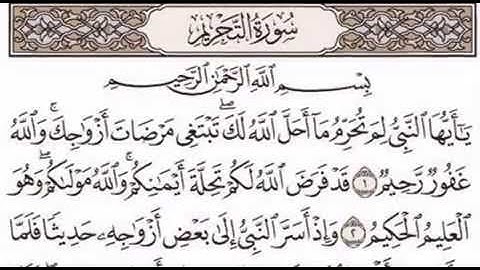 سُورَةُ التَّحْرِيمِ
بِسْمِ اللَّهِ الرَّحْمَٰنِ الرَّحِيمِ
يَٰٓأَيُّهَا ٱلنَّبِىُّ لِمَ تُحَرِّمُ مَآ أَحَلَّ ٱللَّهُ لَكَ ۖ تَبْتَغِى مَرْضَاتَ أَزْوَٰجِكَ ۚ وَٱللَّهُ
غَفُورٌ رَّحِيمٌ ١ قَدْ فَرَضَ ٱللَّهُ لَكُمْ تَحِلَّةَ أَيْمَٰنِكُمْ ۚ وَٱللَّهُ مَوْلَىٰكُمْ ۖ وَهُوَ
ٱلْعَلِيمُ ٱلْحَكِيمُ ٢ وَإِذْ أَسَرَّ ٱلنَّبِىُّ إِلَىٰ بَعْضِ أَزْوَٰجِهِۦ حَدِيثًا فَلَمَّا